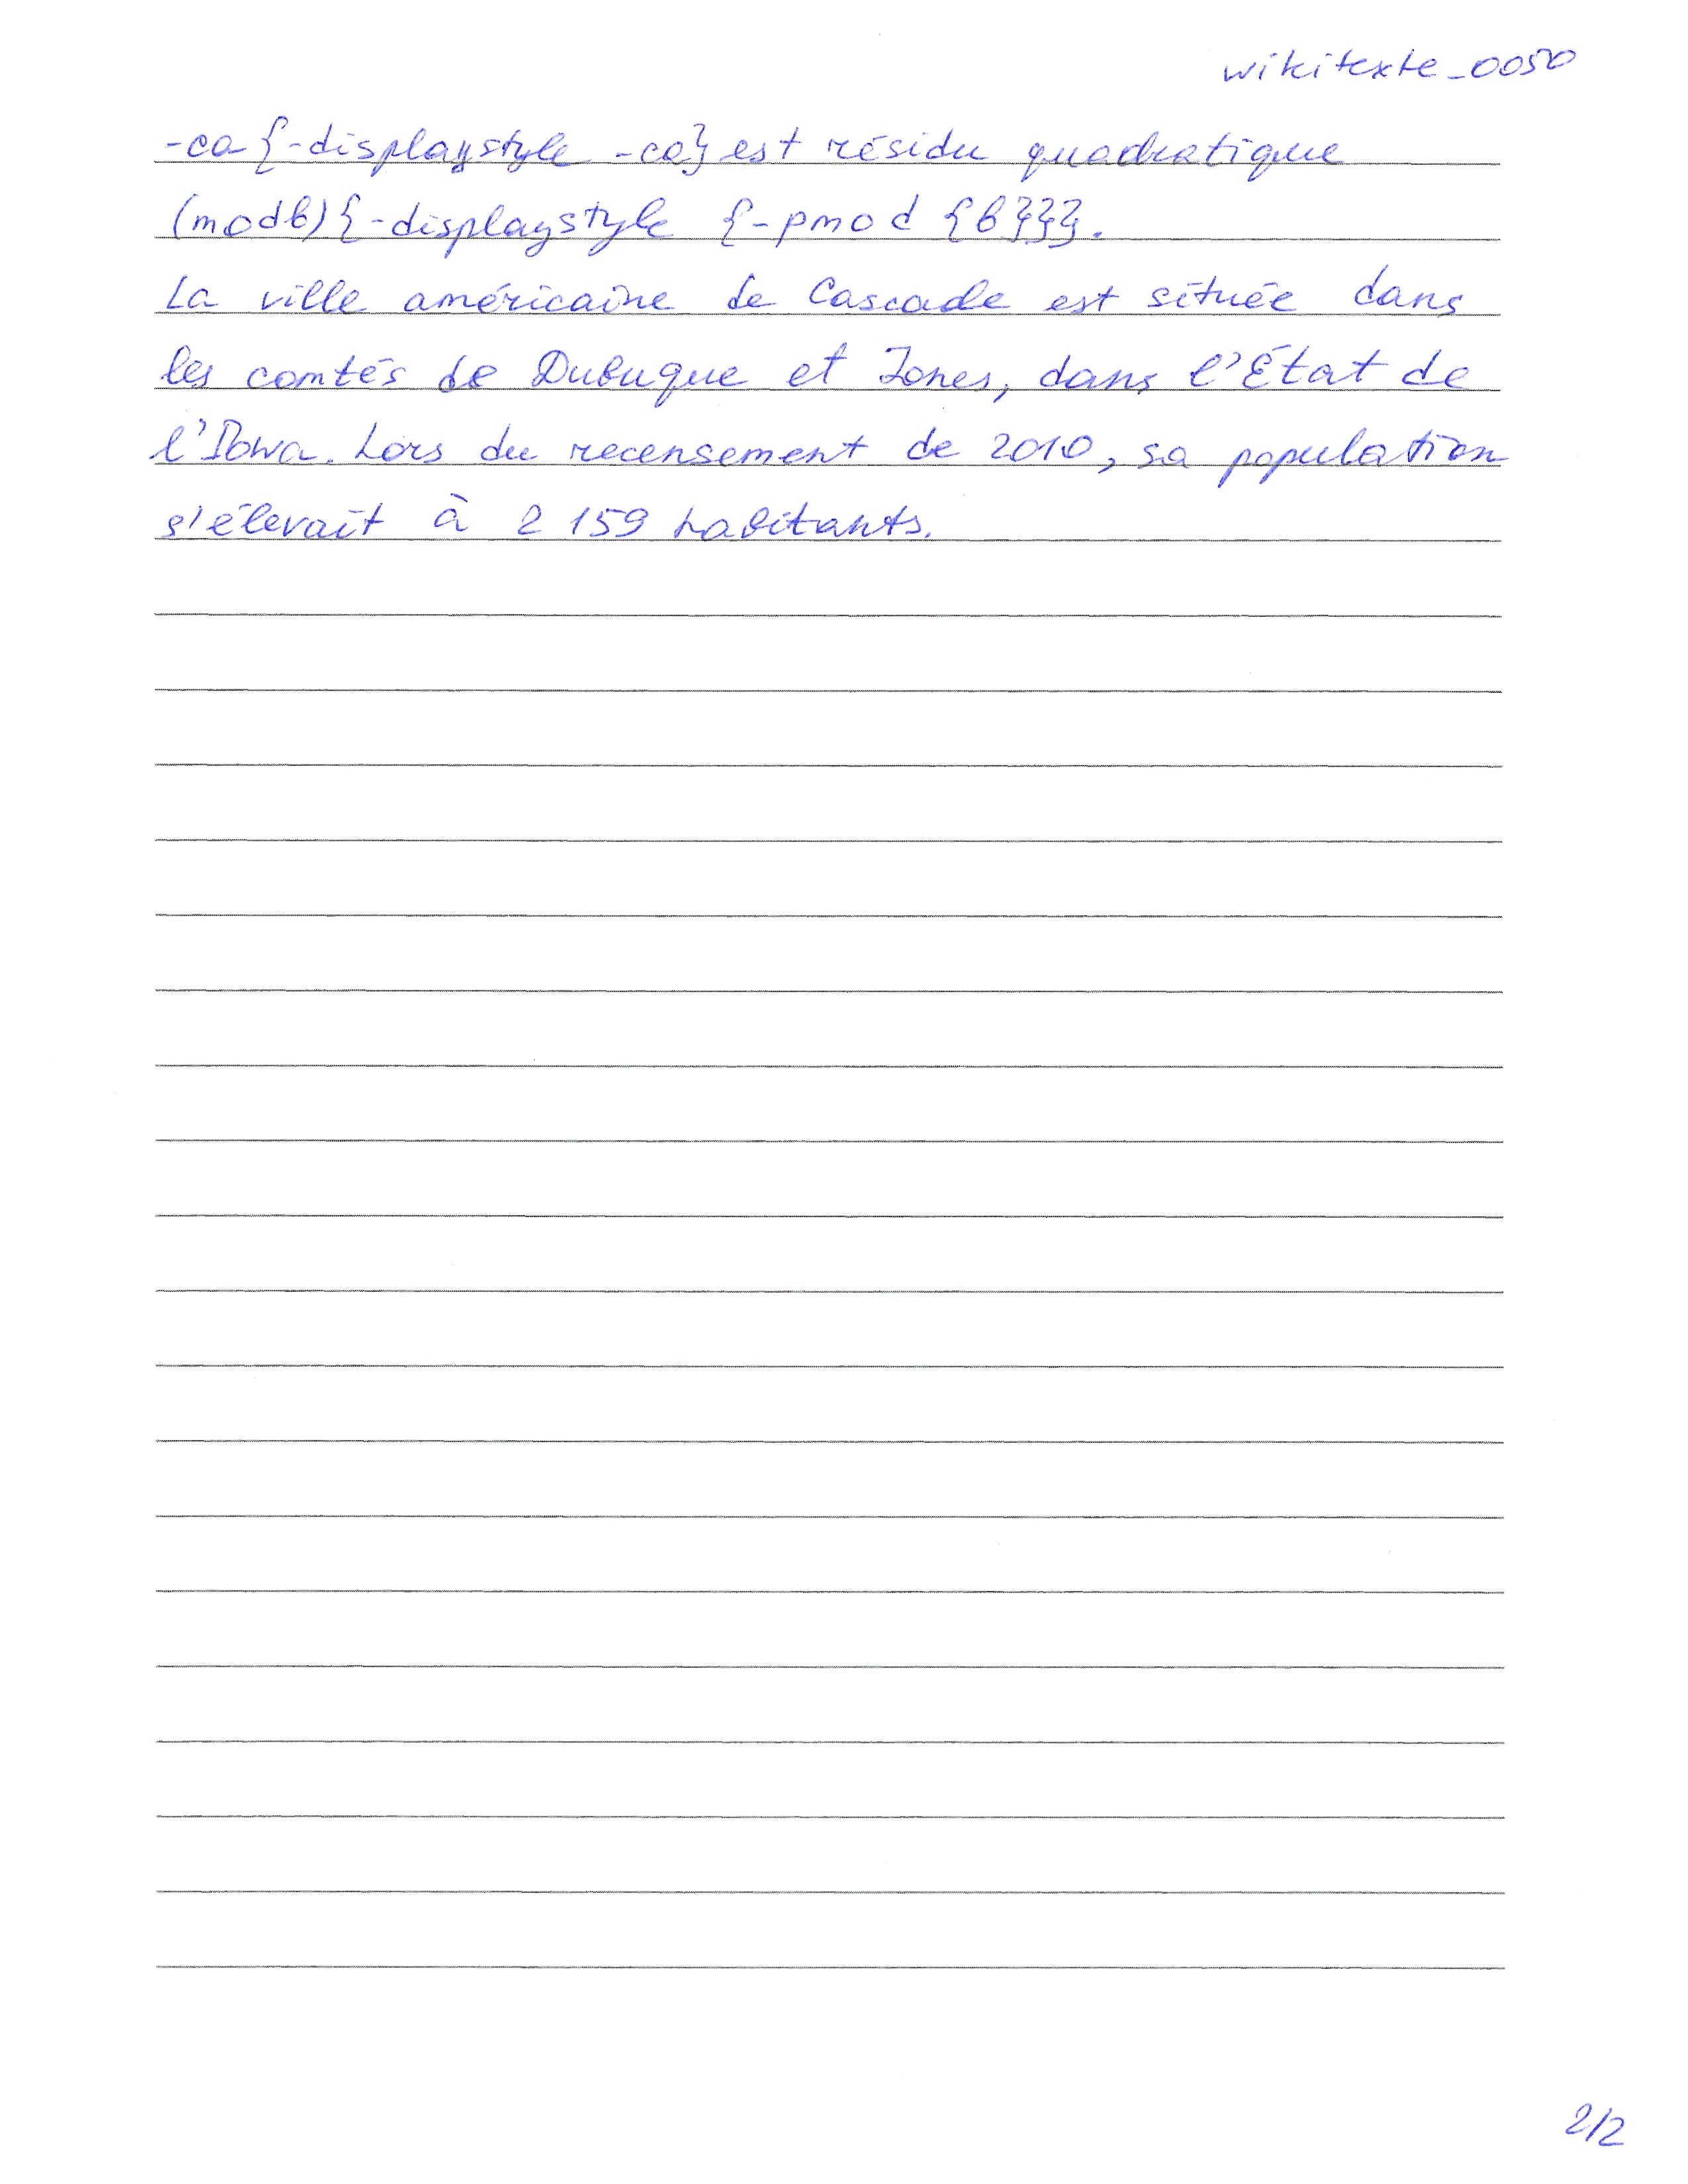 wikitexte_0050
-ca{-displaystyle -ca} est résidu quadratique
(modb){-displaystyle {-pmod {b}}}.
La ville américaine de Cascade est située dans
les comtés de Dubuque et Jones, dans l'État de
l'Iowa. Lors du recensement de 2010, sa population
s'élevait à 2 159 habitants.
2/2